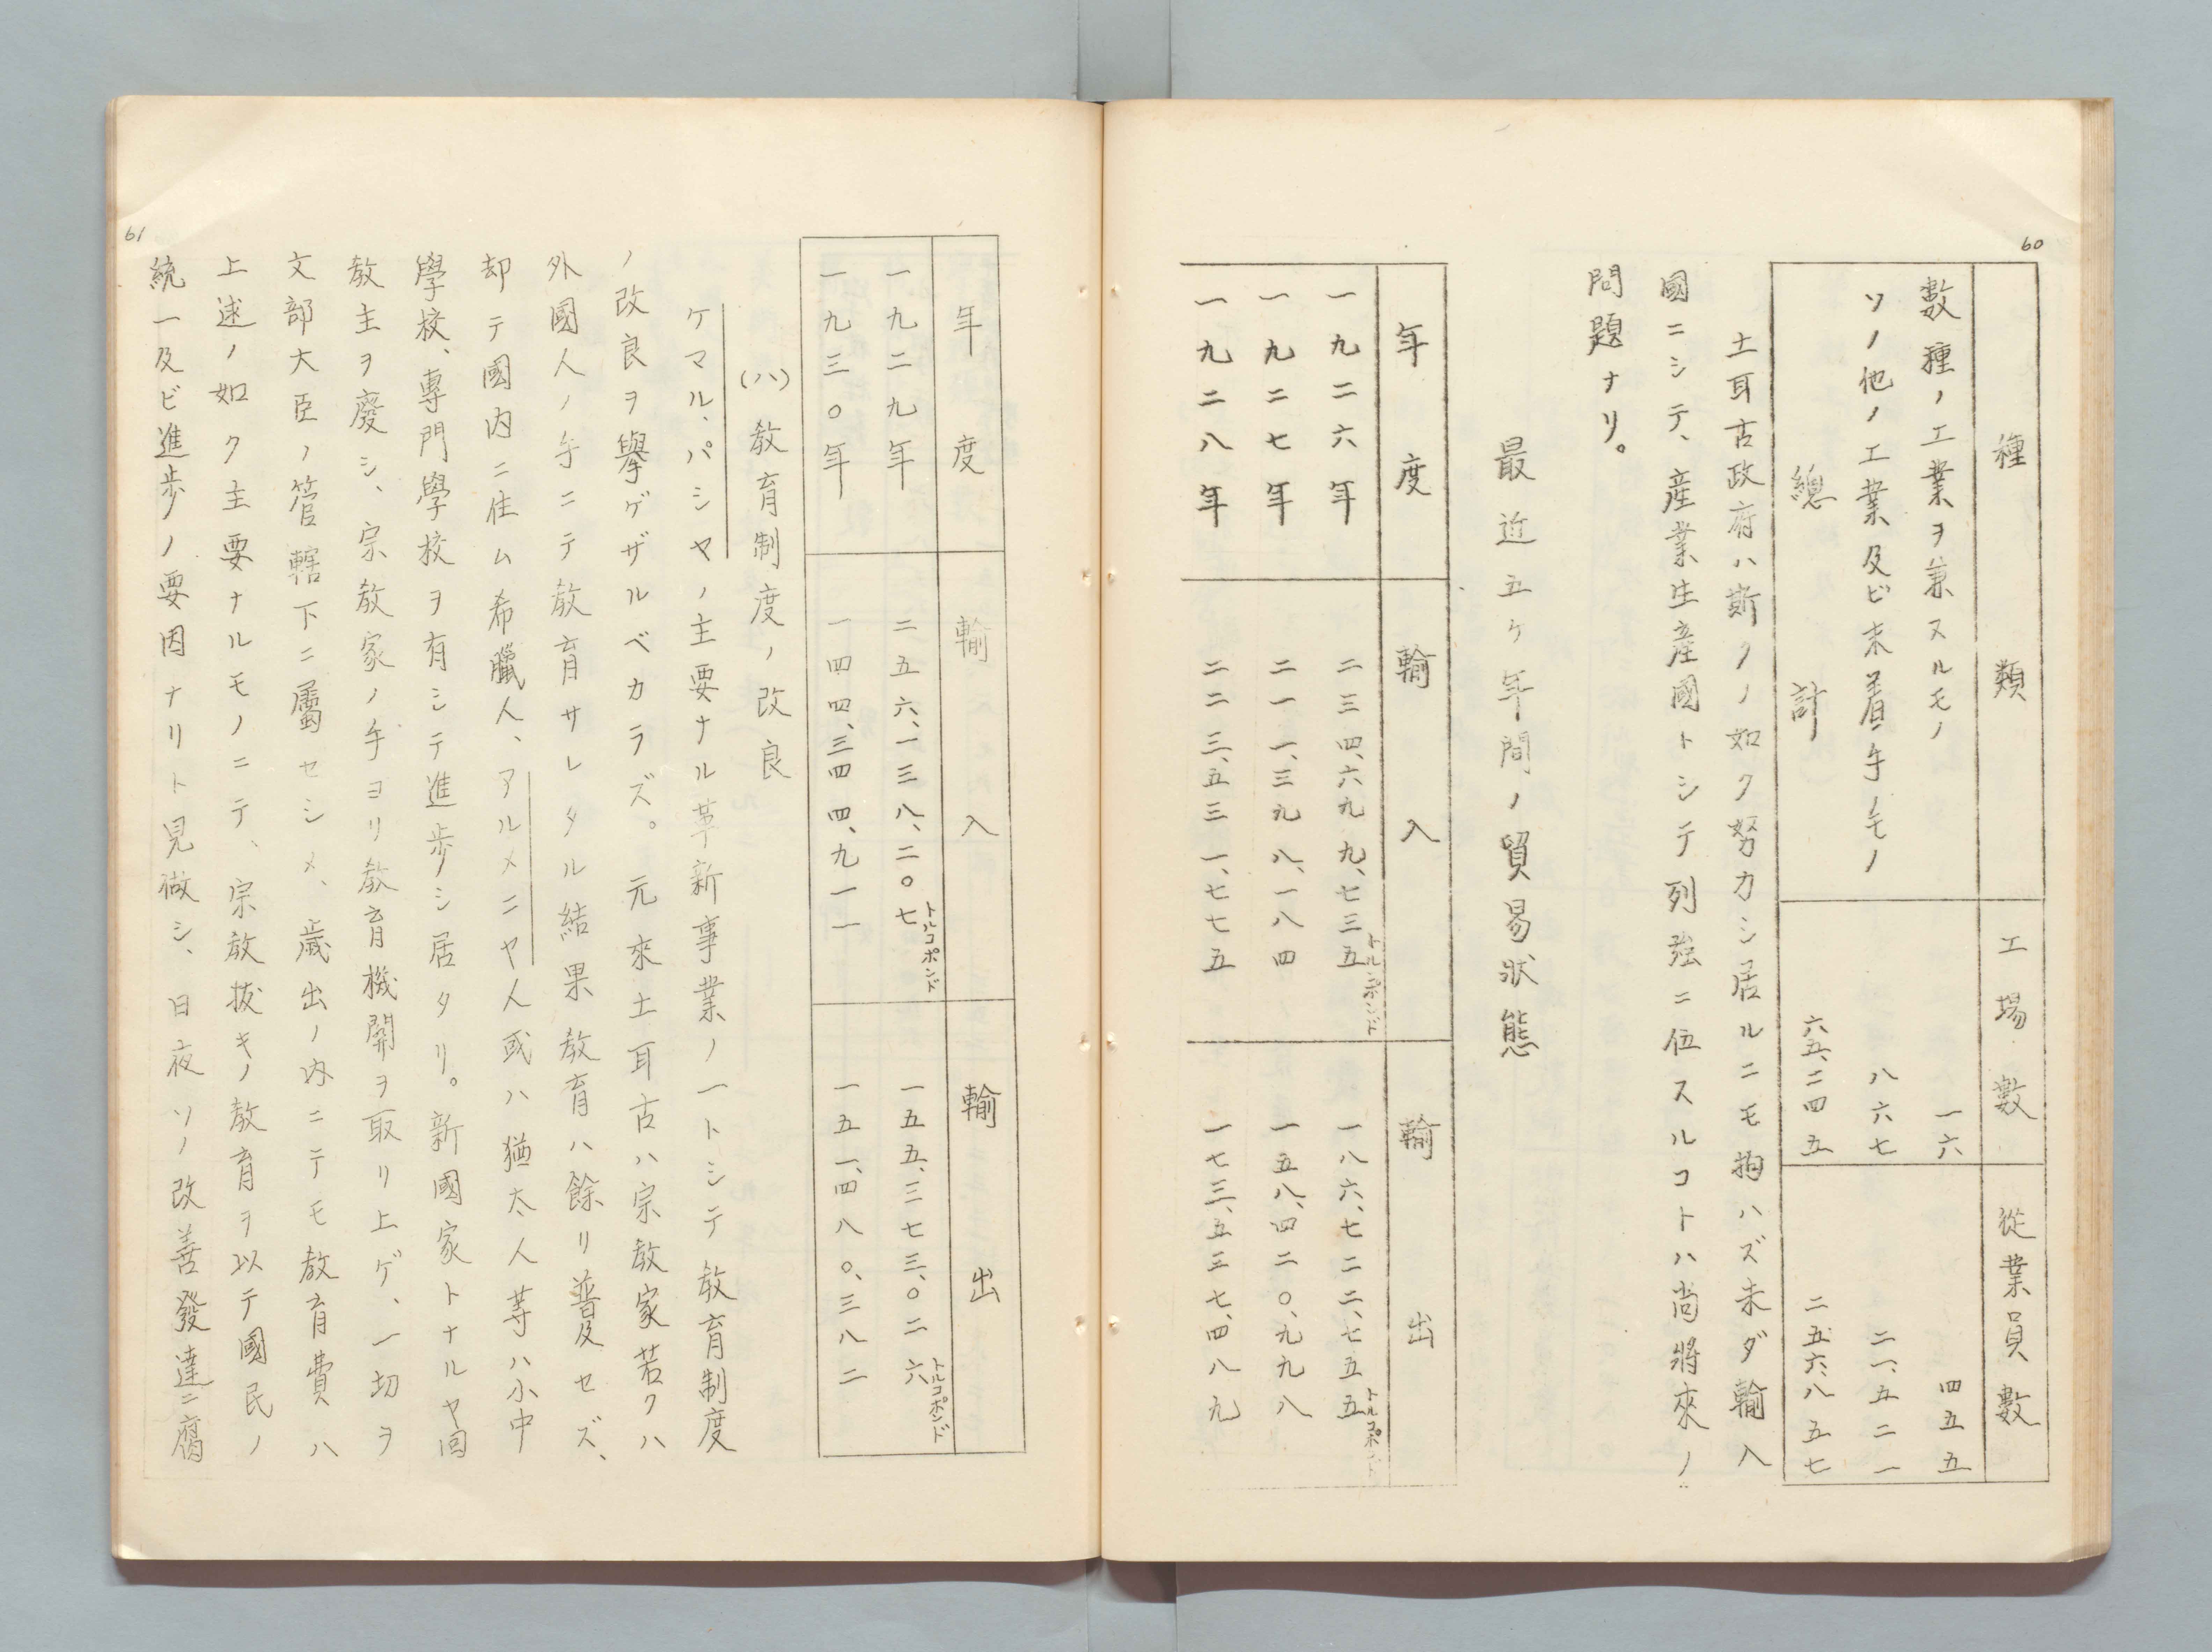 60
種類 工場數 從業員數
數種ノ工業ヲ兼スルモノ 一六 四五五
ソノ他ノ工業及ビ未着手ノモノ 八六七 二一、五二一
總計 六五、二四五 二五六、八五七
土耳古政府ハ斯クノ如ク努力シ居ルニモ拘ハズ未ダ輸入
國ニシテ、産業生産國トシテ列強ニ伍スルコトハ尚將來ノ
問題ナリ。
最近五ヶ年間ノ貿易狀態
年度 輸入 輸出
一九二六年 二三四、六九九、七三五トルコポンド 一八六、七二二、七五五トルコポンド
一九二七年 二一一、三九八、一八四 一五八、四二〇、九九八
一九二八年 二二三、五三一、七七五 一七三、五三七、四八九
年度 輸入 輸出
一九二九年 二五六、一三八、二〇七トルコポンド 一五五、三七三、〇二六トルコポンド
一九三〇年 一四四、三四四、九一一 一五一、四八〇、三八二
(ハ)教育制度ノ改良
ケマル、パシヤノ主要ナル革新事業ノ一トシテ教育制度
ノ改良ヲ擧ゲザルベカラズ。元來土耳古ハ宗教家若クハ
外國人ノ手ニテ教育サレタル結果教育ハ餘リ普及セズ、
却テ國内ニ住ム希臘人、アルメニヤ人或ハ猶太人等ハ小中
學校、專門學校ヲ有シテ進歩シ居タリ。新國家トナルヤ回
教主ヲ廢シ、宗教家ノ手ヨリ教育機關ヲ取リ上ゲ、一切ヲ
文部大臣ノ管轄下ニ屬セシメ、歲出ノ内ニテモ教育費ハ
上述ノ如ク主要ナルモノニテ、宗教拔キノ教育ヲ以テ國民ノ
統一及ビ進歩ノ要因ナリト見做シ、日夜ソノ改善發達ニ腐
61